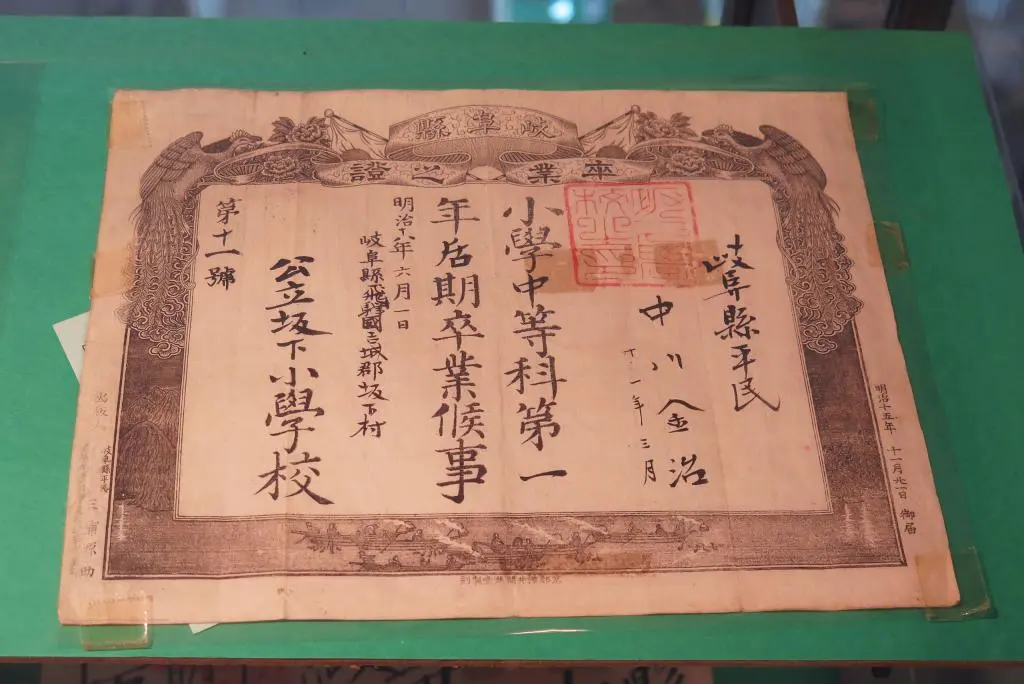 岐阜縣
卒業之證
岐阜縣平民
中川金治
十一年三月
小學中等科第一
年后期卒業候事
明治十八年六月一日
岐阜縣飛驒國吉城郡坂下村
公立坂下小學校
第十一號
明治十五年 十一月廿一日 御届
出版人 岐阜縣平民 三浦源助